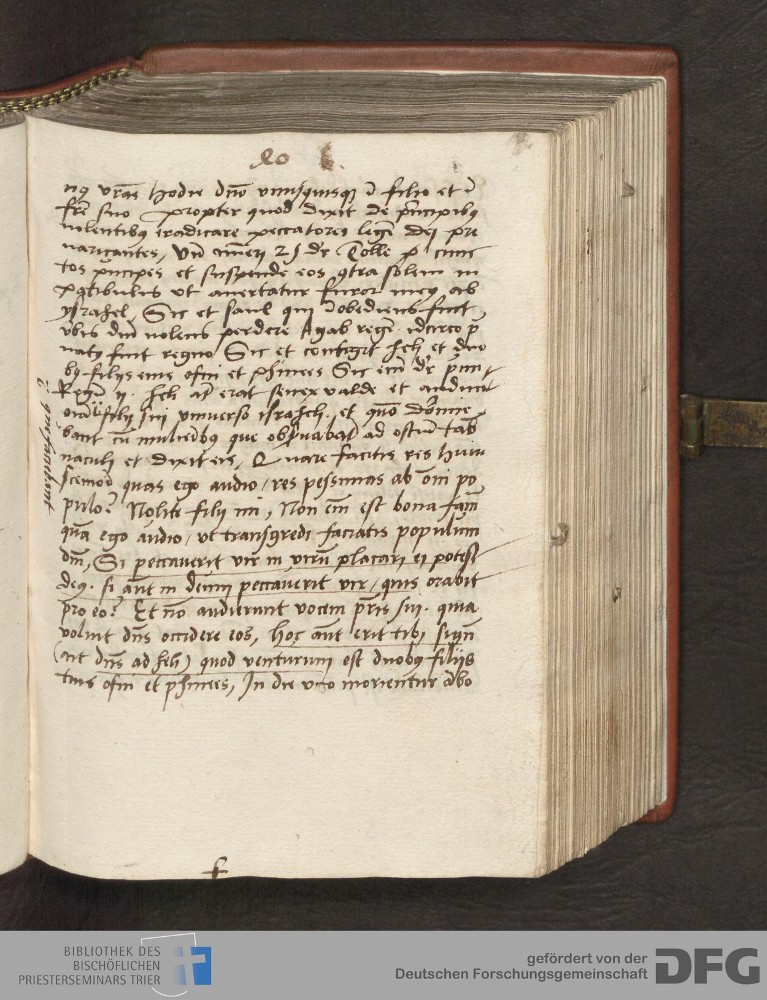 80
nꝰ vr̃as hodie dño vnusquisqꝫ ĩ filio et ĩ
fr̃e suo propter quod dixit de principibꝰ
nolentibꝰ eradicare peccatores legẽ dei pre
uaricantes, Vñ nũeri 25 dr̃ Tolle cunc
tos pñcipes et suspende eos ꝯtra solem in
patibulis vt auertatur furor meꝰ ab
ysrahel, Sic et saul qui ĩobediens fuit
vbis dñi nolens perdere Agab regẽ idcirco p
uatꝰ fuit regno Sic et contigit heli et duo
bꝰ filijs eius ofni et phinees Sic eñi dr̃ pĩm
Regũ ij. heli aũt erat senex valde et audiuit
oĩa filij sui vniuerso israheli, et quõ dormie
bant cũ mulieribꝰ que obseruabãt ad ostiũ tab
naculi et dixit eis, Quare facitis res huius
scemodi quas ego audio, res pessimas ab oĩni po
pulo? Nolite filij mi, Non eñi est bona fama
quã ego audio, vt transgredi faciatis populum
dñi, Si peccauerit vir in virũ placari ei potest
deꝰ. si aũt in deum peccauerit vir, quis orabit
pro eo? Et nõ audierunt vocem pr̃is sui. quia
voluit dñs occidere eos, hoc aũt erit tibi signũ
(ait dñs ad heli) quod venturum est duobꝰ filijs
tuis ofni et phinees, In die vno morientur ambo
f
BIBLIOTHEK DES
BISCHÖFLICHEN
PRIESTERSEMINARS TRIER
gefördert von der
Deutschen Forschungsgemeinschaft
DFG